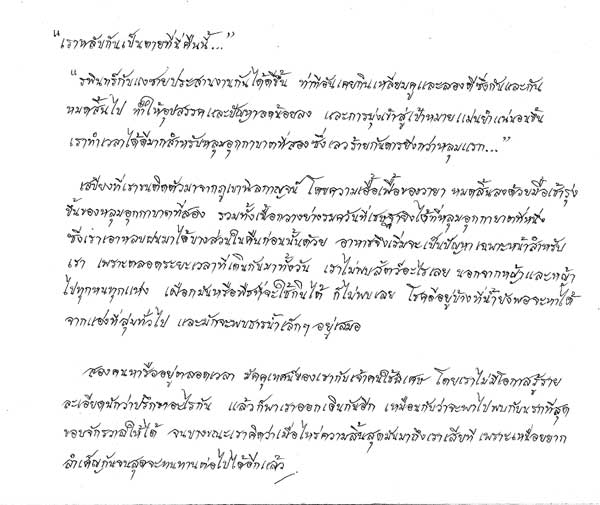 "เราหลับกันเป็นตายที่นี่คืนนี้..."
"รพินทร์กับแงซายประสานงานกันได้ดีขึ้น ท่าทีอันเคยกินเหลี่ยมคูและลองดีซึ่งกันและกัน
หมดสิ้นไป ทำให้อุปสรรคและปัญหาลดน้อยลง และการมุ่งเข้าสู่เป้าหมายแม่นยำแน่นอนขึ้น
เราทำเวลาได้ดีมากสำหรับหลุมอุกกาบาตที่สอง ซึ่งเลวร้ายกันดารยิ่งกว่าหลุมแรก..."
เสบียงที่เราขนติดตัวมาจากภูเขานิลกาญจน์ โดยความเอื้อเฟื้อของวายา หมดสิ้นลงด้วยมื้อเช้ารุ่ง
ขึ้นของหลุมอุกกาบาตที่สอง รวมทั้งเนื้อกวางย่างรมควันที่เชษฐายิงได้ที่หลุมอุกกาบาตที่หนึ่ง
ซึ่งเราเอาหลบฝนมาได้บางส่วนในคืนก่อนนั้นด้วย อาหารจึงเริ่มจะเป็นปัญหาเฉพาะหน้าสำหรับ
เรา เพราะตลอดระยะเวลาที่เดินกันมาทั้งวัน เราไม่พบสัตว์อะไรเลย นอกจากหญ้าและหญ้า
ไปทุกหนทุกแห่ง เผือกมันหรือพืชที่จะใช้กินได้ ก็ไม่พบเลย โชคดีอยู่บ้างที่น้ำยังพอจะหาได้
จากแอ่งที่ลุ่มทั่วไป และมักจะพบธารน้ำเล็กๆ อยู่เสมอ
สองคนหารืออยู่ตลอดเวลา มัคคุเทศก์ของเรากับเจ้าคนใช้พิเศษ โดยเราไม่มีโอกาสรู้ราย
ละเอียดนักว่าปรึกษาอะไรกัน แล้วก็พาเราออกเดินกันอีก เหมือนกับว่าจะพาไปพบกับนรกที่สุด
ขอบจักรวาลให้ได้ จนบางขณะเราคิดว่าเมื่อไหร่ความสิ้นสุดมันมาถึงเราเสียที เพราะเหนื่อยยาก
ลำเค็ญกันจนสุดจะทนทานต่อไปได้อีกแล้ว